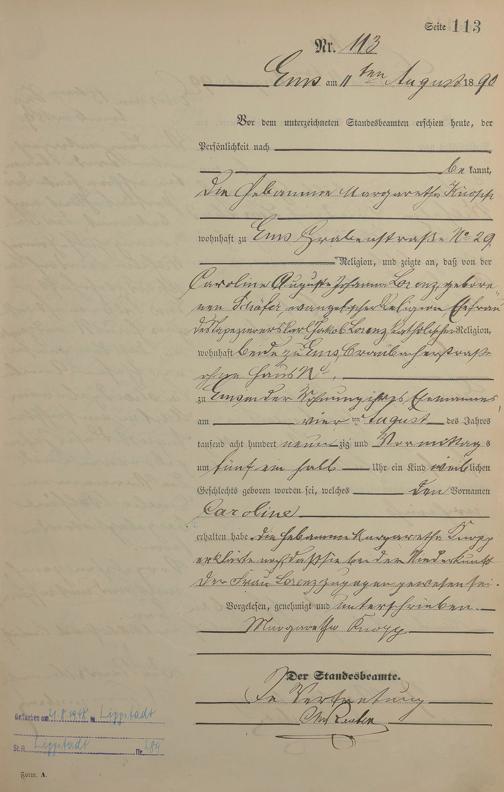 Seite 113
Nr. 113
Ems am 11ten August 1890
Vor dem unterzeichneten Standesbeamten erschien heute, der
Persönlichkeit nach
bekannt,
die Hebamme Margaretha Knopp
wohnhaft zu Ems Grabenstraße No 29
Religion, und zeigte an, daß von der
Caroline Auguste Johanna Lorenz, gebore-
nen Schäfer evangelischer Religion Ehefrau
des Tapezierers Karl Jakob Lorenz katholischer Religion,
wohnhaft beide zu Ems Braubacherstraße
ohne Haus No
zu Ems in der Wohnung ihres Ehemannes
am vier ten August des Jahres
tausend acht hundert neunzig und Vormittags
um fünf ein halb Uhr ein Kind weiblichen
Geschlechts geboren worden sei, welches den Vornamen
Caroline
erhalten habe. die Hebamme Margaretha Knopp
erklärte noch daß sie bei der Niederkunft
der Frau Lorenz zugegen gewesen sei.
Vorgelesen, genehmigt und unterschrieben.
Margaretha Knopp
Der Standesbeamte.
In Vertretung
Gestorben am 4.8.1948 in Lippstadt
St.A. Lippstadt Nr.
Form. A.